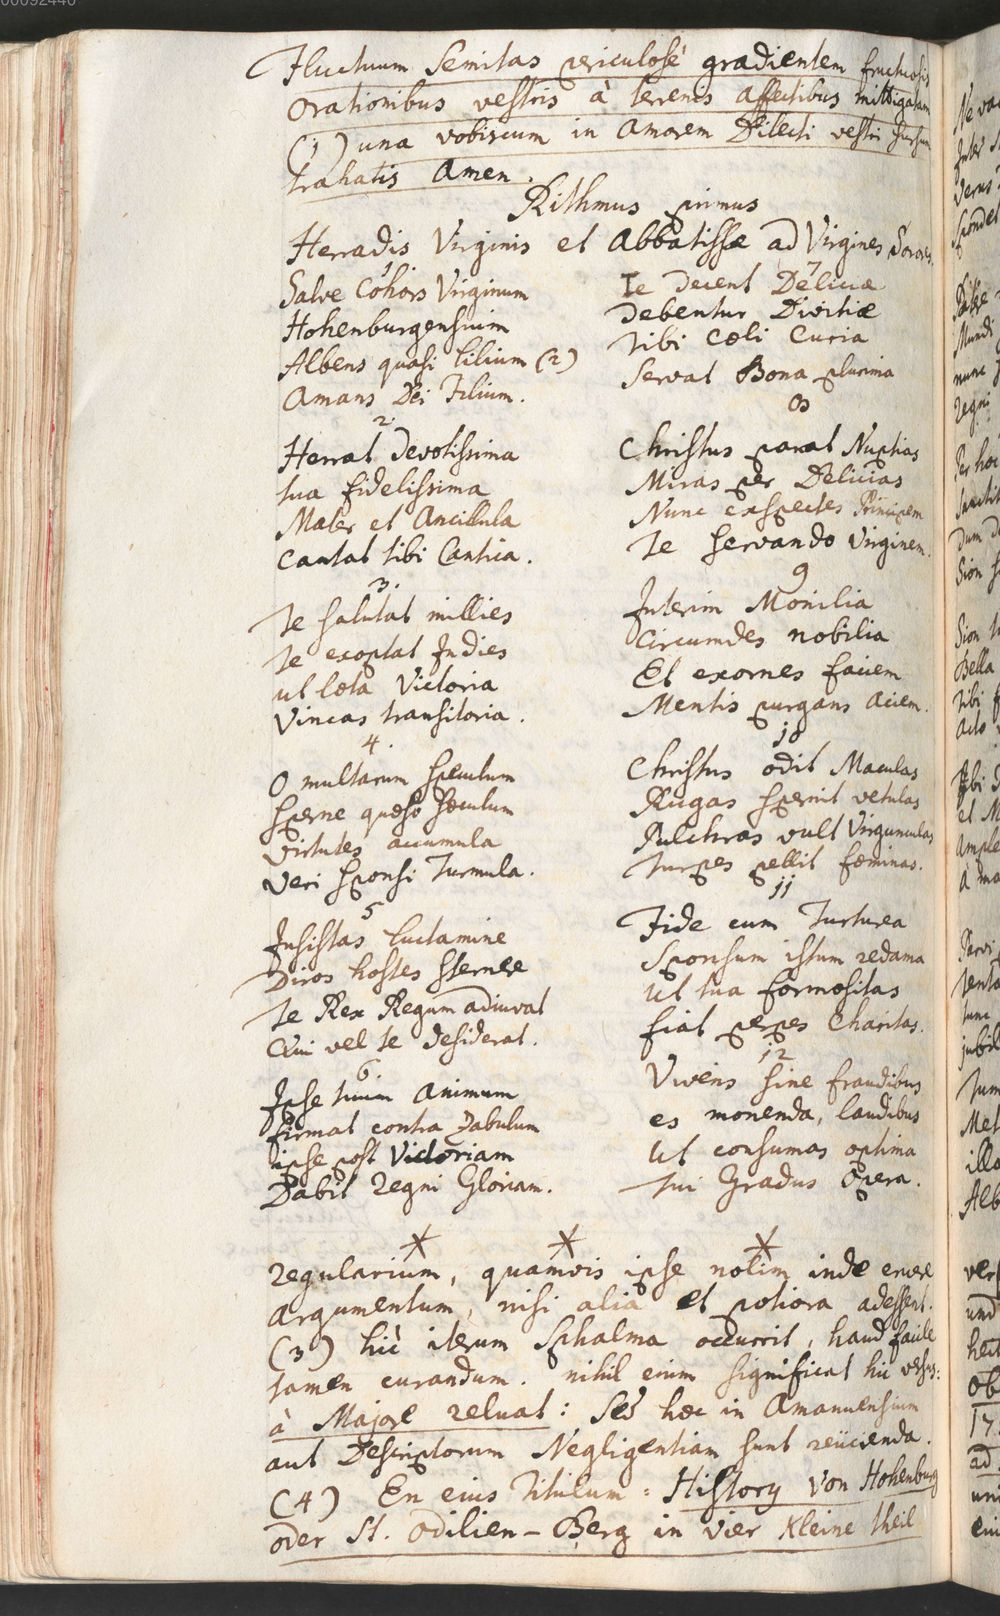 Fluctuum Semitas periculosè gradientem fructuosis
orationibus vestris à terrenis affectibus mittigatam
(1) una vobiscum in amorem Dilecti vestri sursum
trahatis Amen.
Rithmus primus
Herradis Virginis et Abbatissæ ad Virgines Sorores.
1
Salve Cohors Virginum
Hohenburgensium
Albens quasi lilium (2)
Amans Dei Filium.
2.
Herrat devotissima
tua fidelissima
Mater et Ancillula
Cantat tibi Cantica.
3.
te salutat millies
te exoptat Indies
ut læta Victoria
Vincas transitoria.
4.
O multarum Speculum
Sperne quæso sæculum
Virtutes accumula
Veri Sponsi Turmula.
5
Insistas luctamine
Diros hostes sternere
te Rex Regum adiuvat
Qui vel te desiderat.
6.
Ipse tuum Animum
firmat contra Zabulum
ipse post Victoriam
Dabit regni Gloriam.
7
Te Decent Deliciæ
Debentur Divitiæ
tibi Cœli Curia
Servat Bona plurima
8
Christus parat Nuptias
Miras per Delicias
Nunc exspectes Principem
te servando Virginem.
9
Interim Monilia
Circumdes nobilia
Et exornes faciem
Mentis purgans aciem.
10
Christus odit Maculas
Rugas spernit vetulas
Pulchras vult Virgunculas
turpes pellit fœminas.
11
Fide cum Turturea
Sponsum istum redama
ut tua formositas
fiat perpes Charitas.
12
Vivens sine fraudibus
es monenda, laudibus
ut consumas optima
tui Gradus opera.
* * *
regularium, quamvis ipse nolim inde eruere
argumentum, nisi alia et potiora adessent.
(3) hîc iterum Sphalma occurrit, haud facile
tamen curandum. nihil enim significat hic versus:
à Majore reluat: sed hæc in Amanuensium
aut Descriptorum Negligentiam sunt reiicienda.
(4) En eius titulum: History von Hohenburg
oder St. Odilien-Berg in vier kleine theil